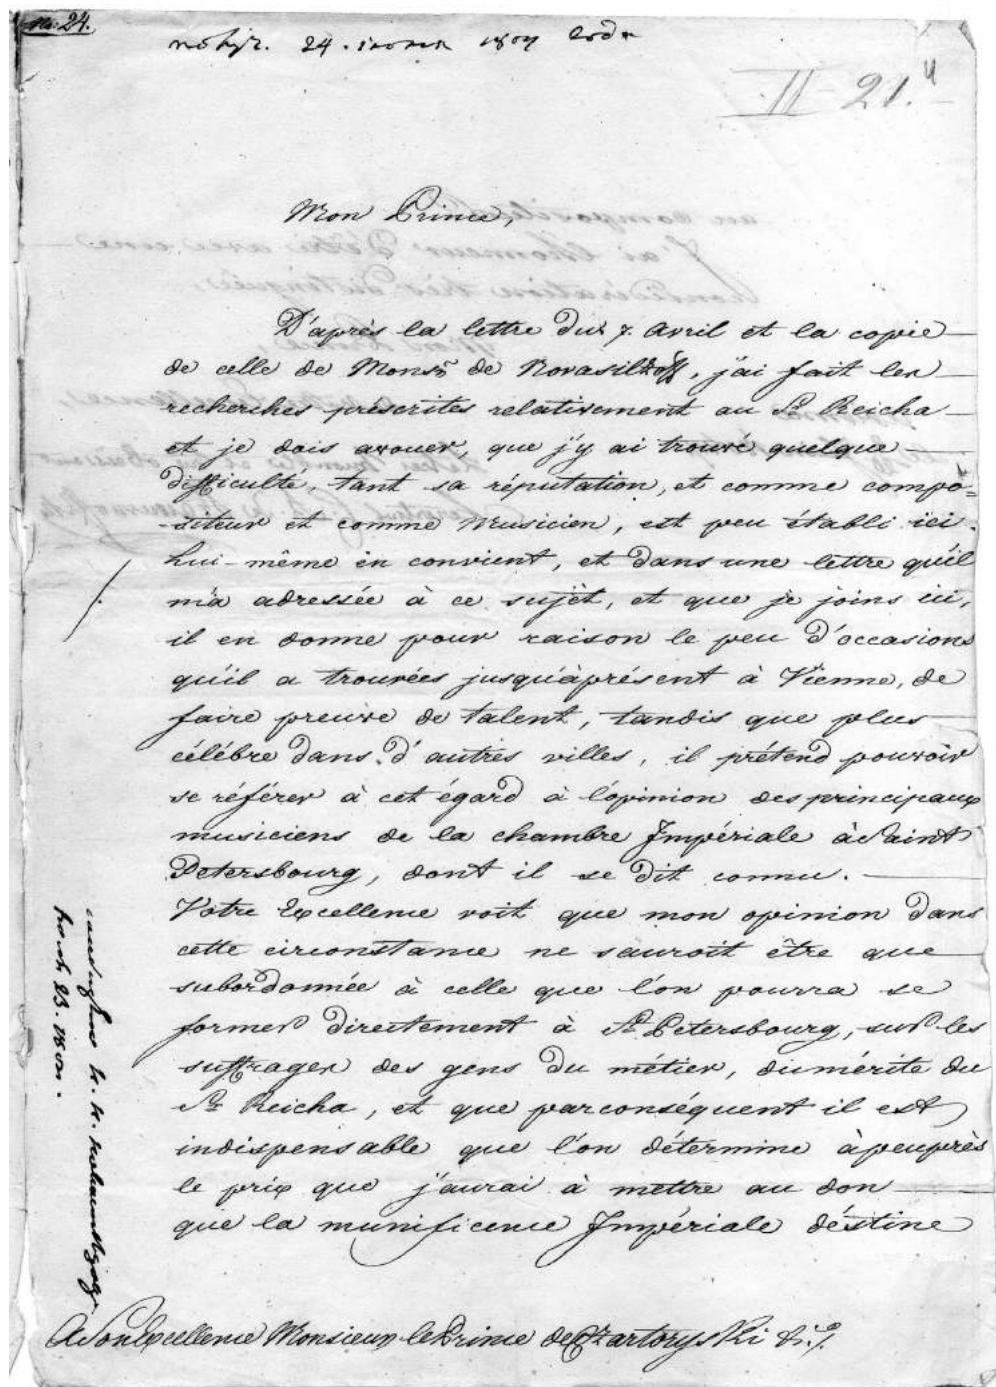 No: 24.
24. 1804
II 21.
Mon Prince,
D'après la lettre du 7. Avril et la copie
de celle de Monsr̃ de Novasiltzoff, j'ai fait les
recherches préscrites relativement au Sr. Reicha
et je dois avouer, que j'y ai trouvé quelque
difficulté, tant sa réputation, et comme compo=
siteur et comme Musicien, est peu établi ici.
Lui-même en convient, et dans une lettre qu'il
m'a adressée à ce sujèt, et que je joins ici,
il en donne pour raison le peu d'occasions
qu'il a trouvées jusqu'àprésent à Vienne, de
faire preuve de talent, tandis que plus
célébre dans d'autres villes, il prétend pouvoir
se référer à cet égard à l'opinion des principaux
musiciens de la chambre Impériale à Saint
Petersbourg, dont il se dit connu.
Votre Excellence voit que mon opinion dans
cette circonstance ne sauroit être que
subordonnée à celle que l'on pourra se
former directement à St. Petersbourg, sur les
suffrages des gens du métier, du mérite du
Sr. Reicha, et que parconséquent il est
indispensable que l'on détermine àpeuprès
le prix que j'aurai à mettre au don
que la munificence Impériale déstine
A Son Excellence Monsieur le Prince de Czartoryski